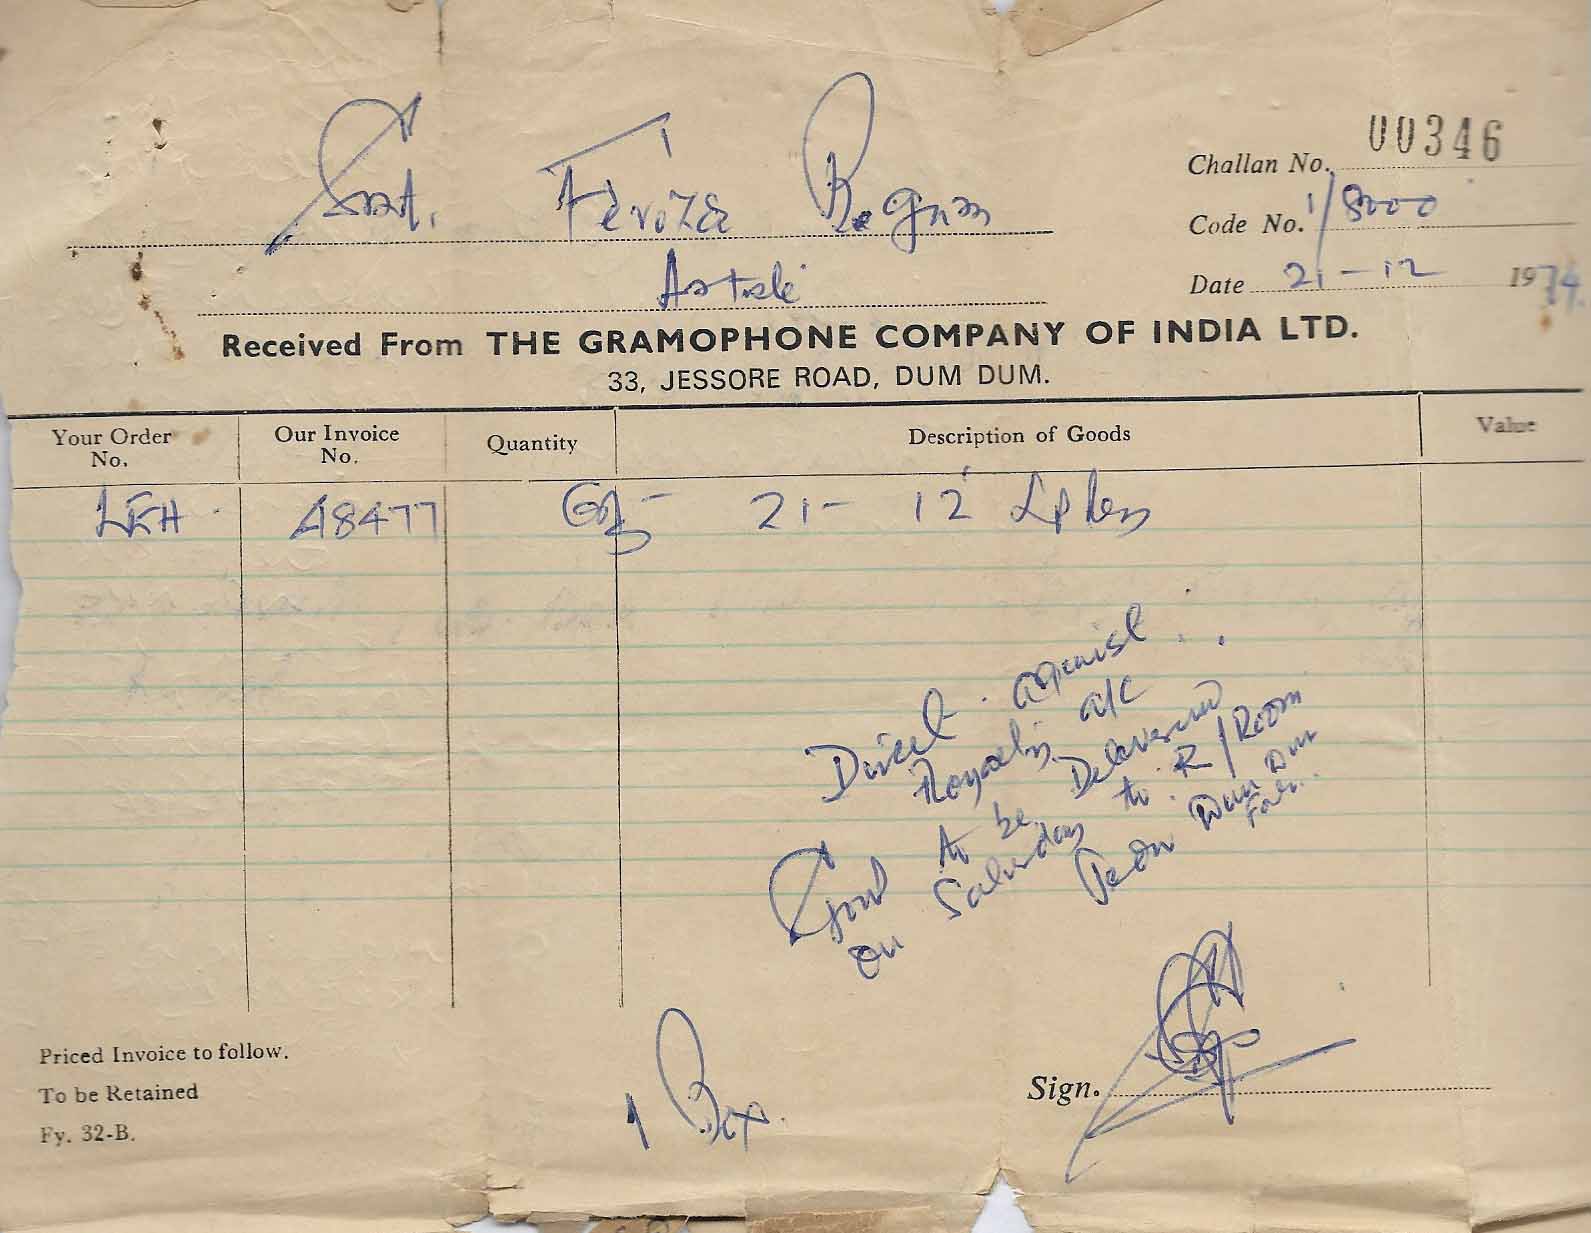 Smt. Feroza Begum
Challan No. 00346
Code No. 1/8000
Artiste
Date 21-12 1974.
Received From THE GRAMOPHONE COMPANY OF INDIA LTD.
33, JESSORE ROAD, DUM DUM.
Your Order No.
Our Invoice No.
Quantity
Description of Goods
Value
48477
21- 12"
Direct against
Royalty a/c
Good to be Delivered
on Saturday to R/Room
Dum Dum
1 Box.
Priced Invoice to follow.
To be Retained
Fy. 32-B.
Sign.